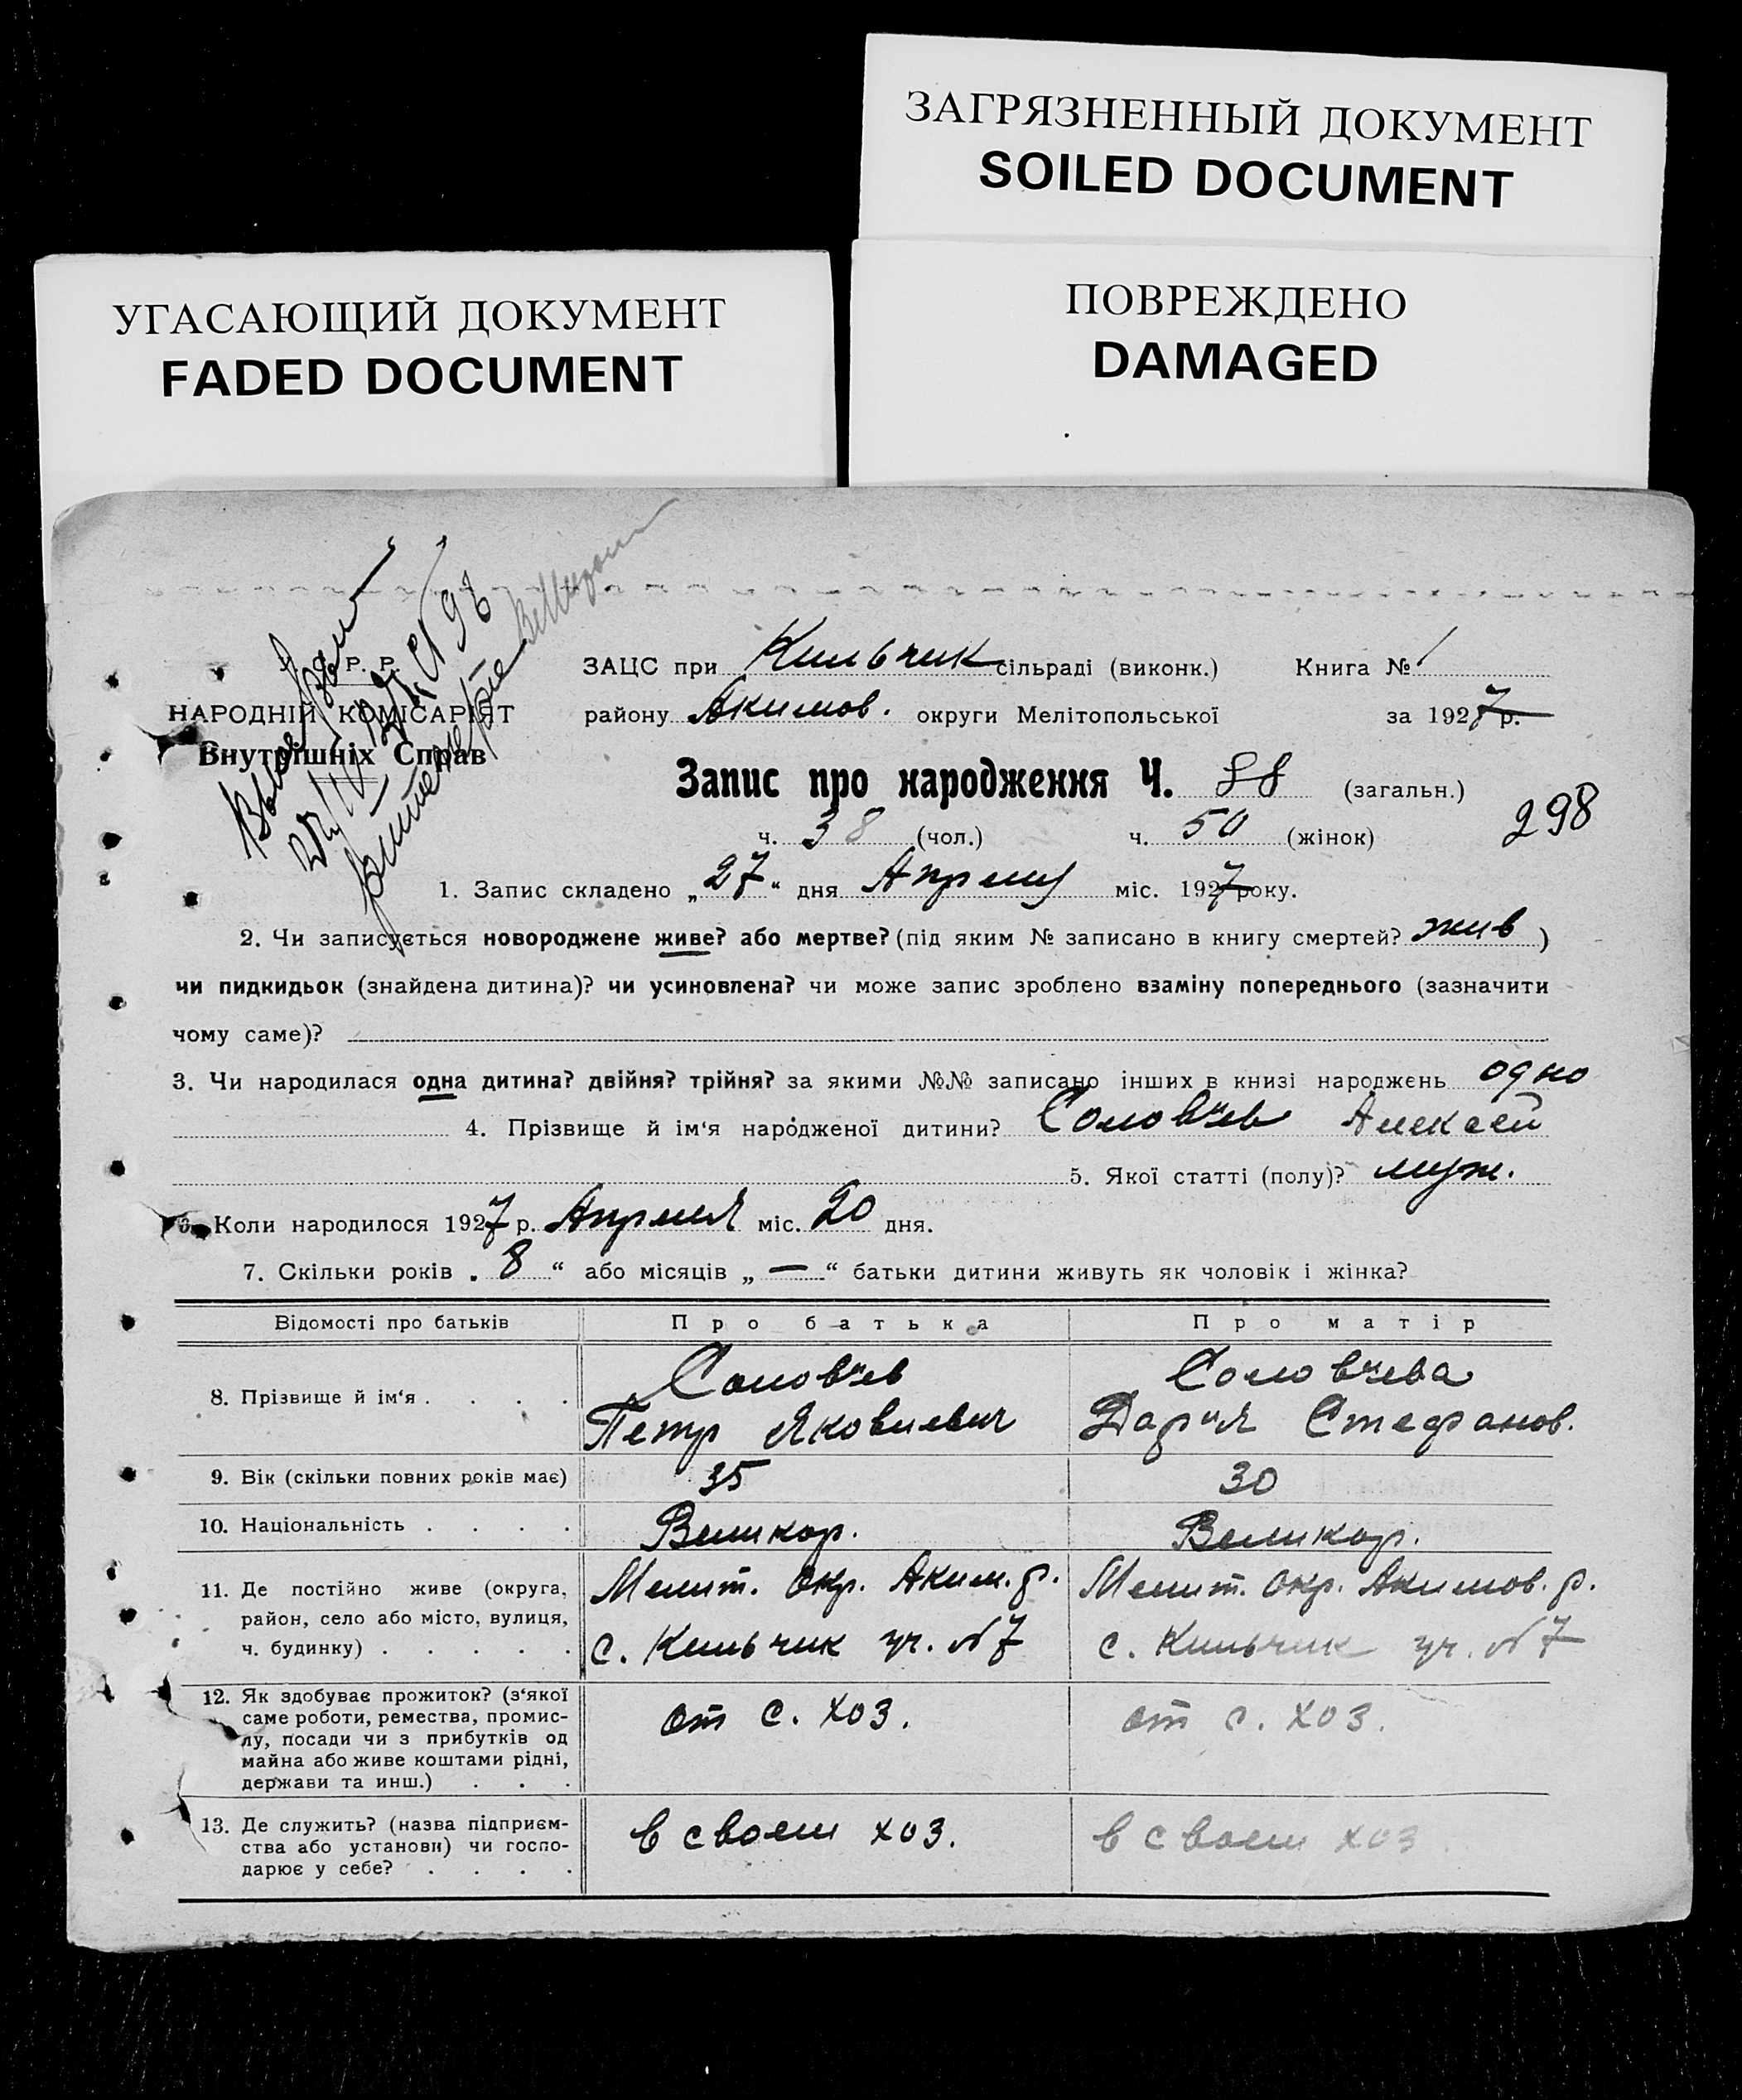 ЗАГРЯЗНЕННЫЙ ДОКУМЕНТ
SOILED DOCUMENT
УГАСАЮЩИЙ ДОКУМЕНТ
FADED DOCUMENT
ПОВРЕЖДЕНО
DAMAGED
Р. Р.
НАРОДНІЙ КОМІСАРІЯТ
Внутрішніх Справ
ЗАЦС при Кильчик сільраді (виконк.) Книга № 1
району Акимов. округи Мелітопольської за 1927 р.
Запис про народження Ч. 88 (загальн.)
298
ч. 38 (чол.) ч. 50 (жінок)
1. Запис складено „27“ дня Апреля міс. 1927 року.
2. Чи записується новороджене живе? або мертве? (під яким № записано в книгу смертей? жив )
чи пидкидьок (знайдена дитина)? чи усиновлена? чи може запис зроблено взаміну попереднього (зазначити
чому саме)?
3. Чи народилася одна дитина? двійня? трійня? за якими №№ записано інших в книзі народжень одно
4. Прізвище й ім‘я народженої дитини? Соловъев Алексей
5. Якої статті (полу)? муж.
6. Коли народилося 1927 р. Апреля міс. 20 дня.
7. Скільки років „8“ або місяців „—“ батьки дитини живуть як чоловік і жінка?
Відомості про батьків Про батька Про матір
8. Прізвище й ім‘я . . . . Соловъев Соловъева
Петр Яковлевич Дария Стефанов.
9. Вік (скільки повних років має) 35 30
10. Національність . . . . Великор. Великор.
11. Де постійно живе (округа, район, село або місто, вулиця, ч. будинку) . . . . . Мелит. окр. Аким. р. Мелит. окр. Акимов. р.
с. Кильчик уч. №7 с. Кильчик уч. №7
12. Як здобуває прожиток? (з‘якої
саме роботи, ремества, промис-
лу, посади чи з прибутків од
майна або живе коштами рідні,
держави та инш.) . . . от с. хоз. от с. хоз.
13. Де служить? (назва підприєм-
ства або установи) чи госпо-
дарює у себе? . . . . в своем хоз. в своем хоз